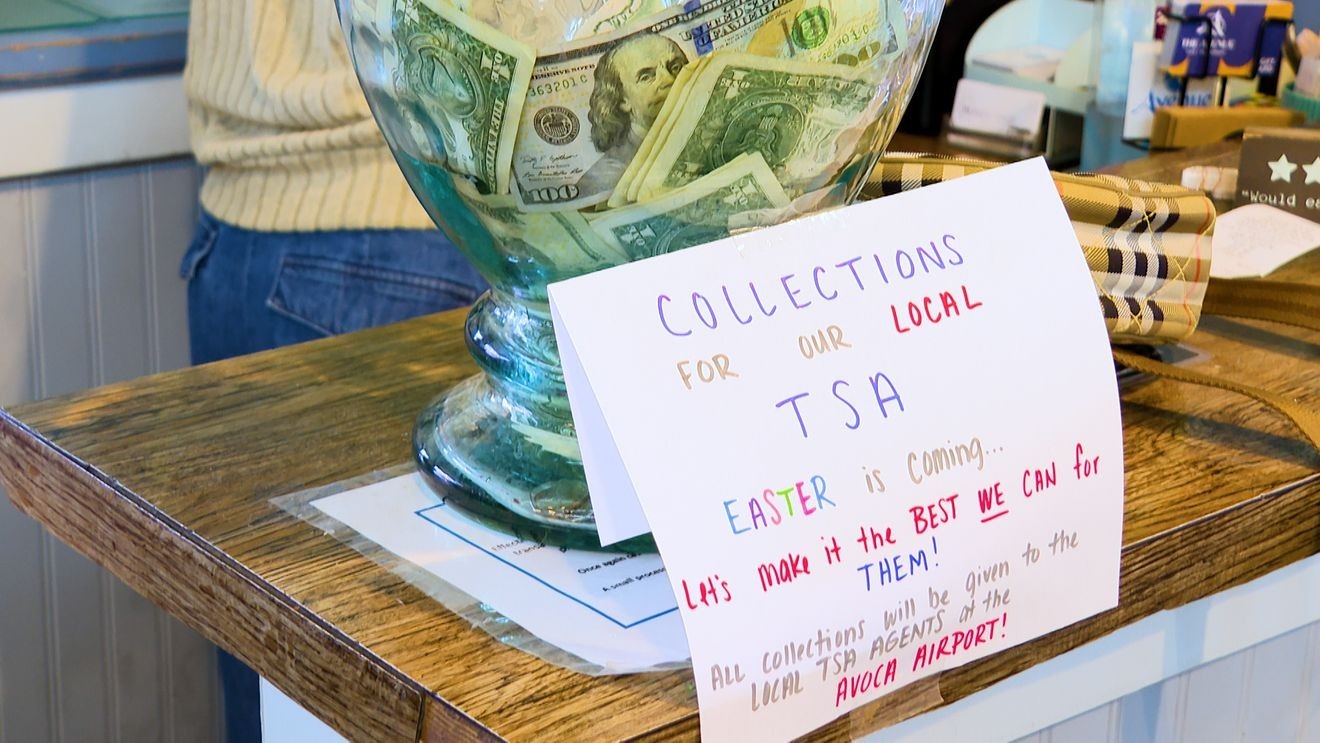 100
COLLECTIONS
FOR OUR LOCAL
TSA
EASTER is coming...
Let's make it the BEST WE CAN for
THEM!
ALL collections will be given to the
LOCAL TSA AGENTS at the
AVOCA AIRPORT!
Once again
A small
Avenue
"Would